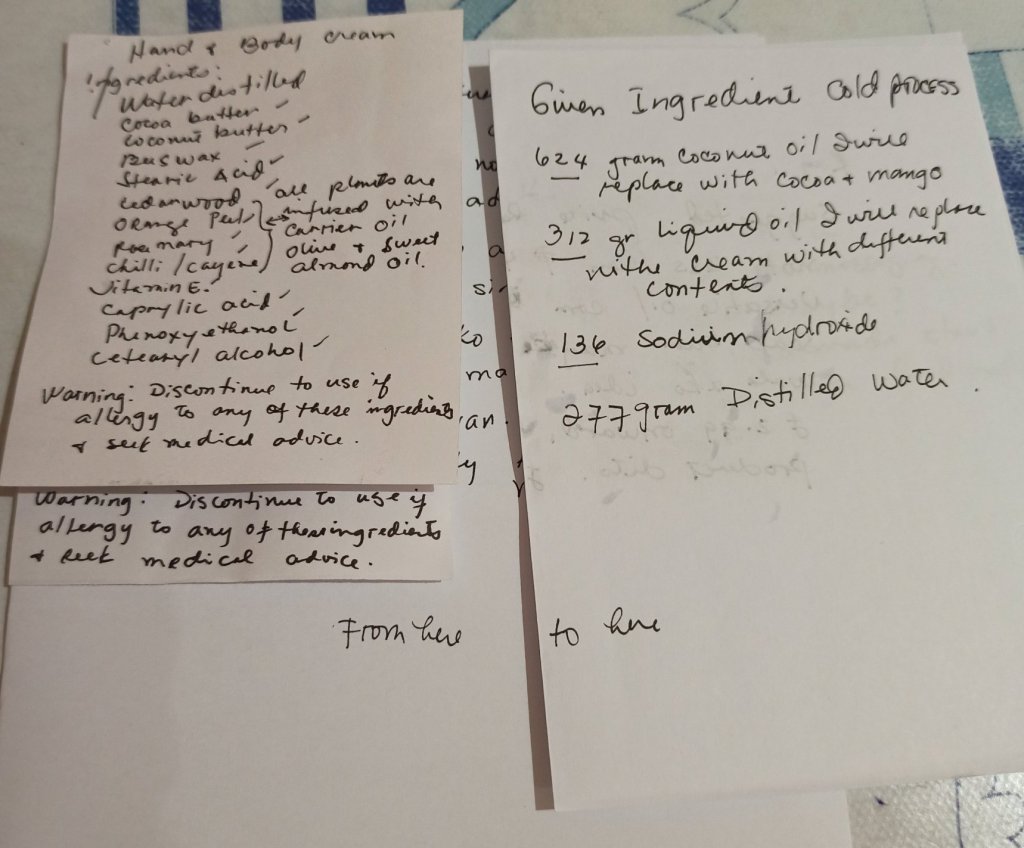 Hand & Body cream
Ingredients:
Water distilled
Cocoa butter
Coconut butter
Beeswax
Stearic Acid
Cedarwood
all plants are
Orange Peel
infused with
Rosemary
Carrier oil
Chilli / cayene
olive + sweet
almond oil.
Vitamin E.
Caprylic acid
Phenoxyethanol
Cetearyl alcohol
Warning: Discontinue to use if
allergy to any of these ingredients
& seek medical advice.
Warning: Discontinue to use if
allergy to any of these ingredients
& seek medical advice.
From here
no
ad
a
si
ko
ma
an
Given Ingredient cold process
624 gram coconut oil I will
replace with cocoa + mango
312 gr liquid oil I will replace
withe cream with different
contents.
136 Sodium hydroxide
277 gram Distilled water.
to here